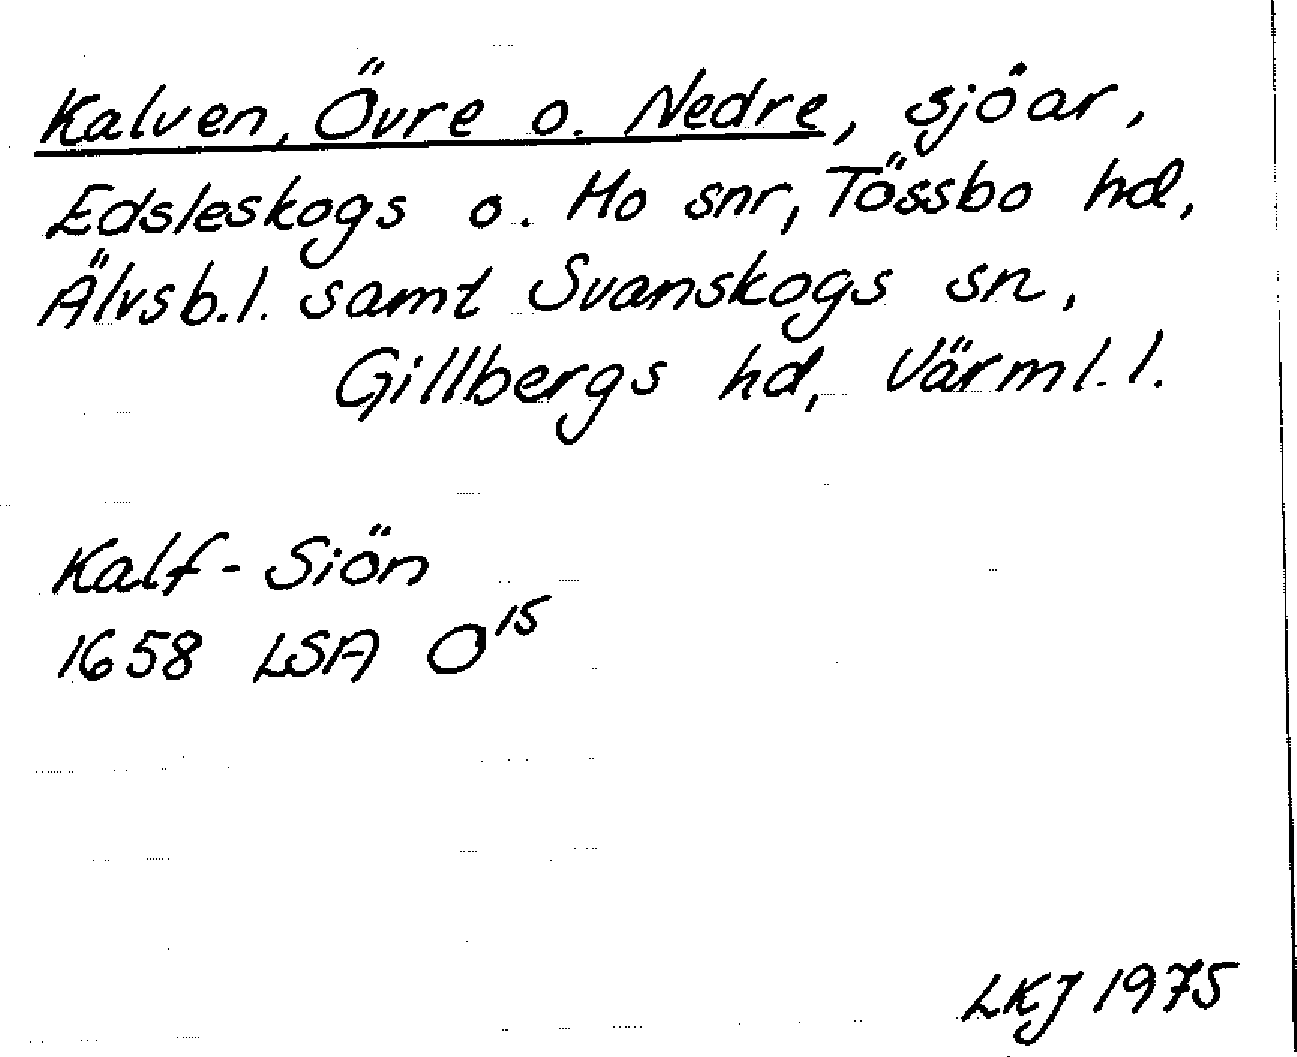 Kalven, Övre o. Nedre, sjöar,
Edsleskogs o. Ho snr, Tössbo hd,
Älvsb.l. samt Svanskogs sn,
Gillbergs hd, Värml.l.
Kalf-Siön
1658 LSA O15
LKJ 1975